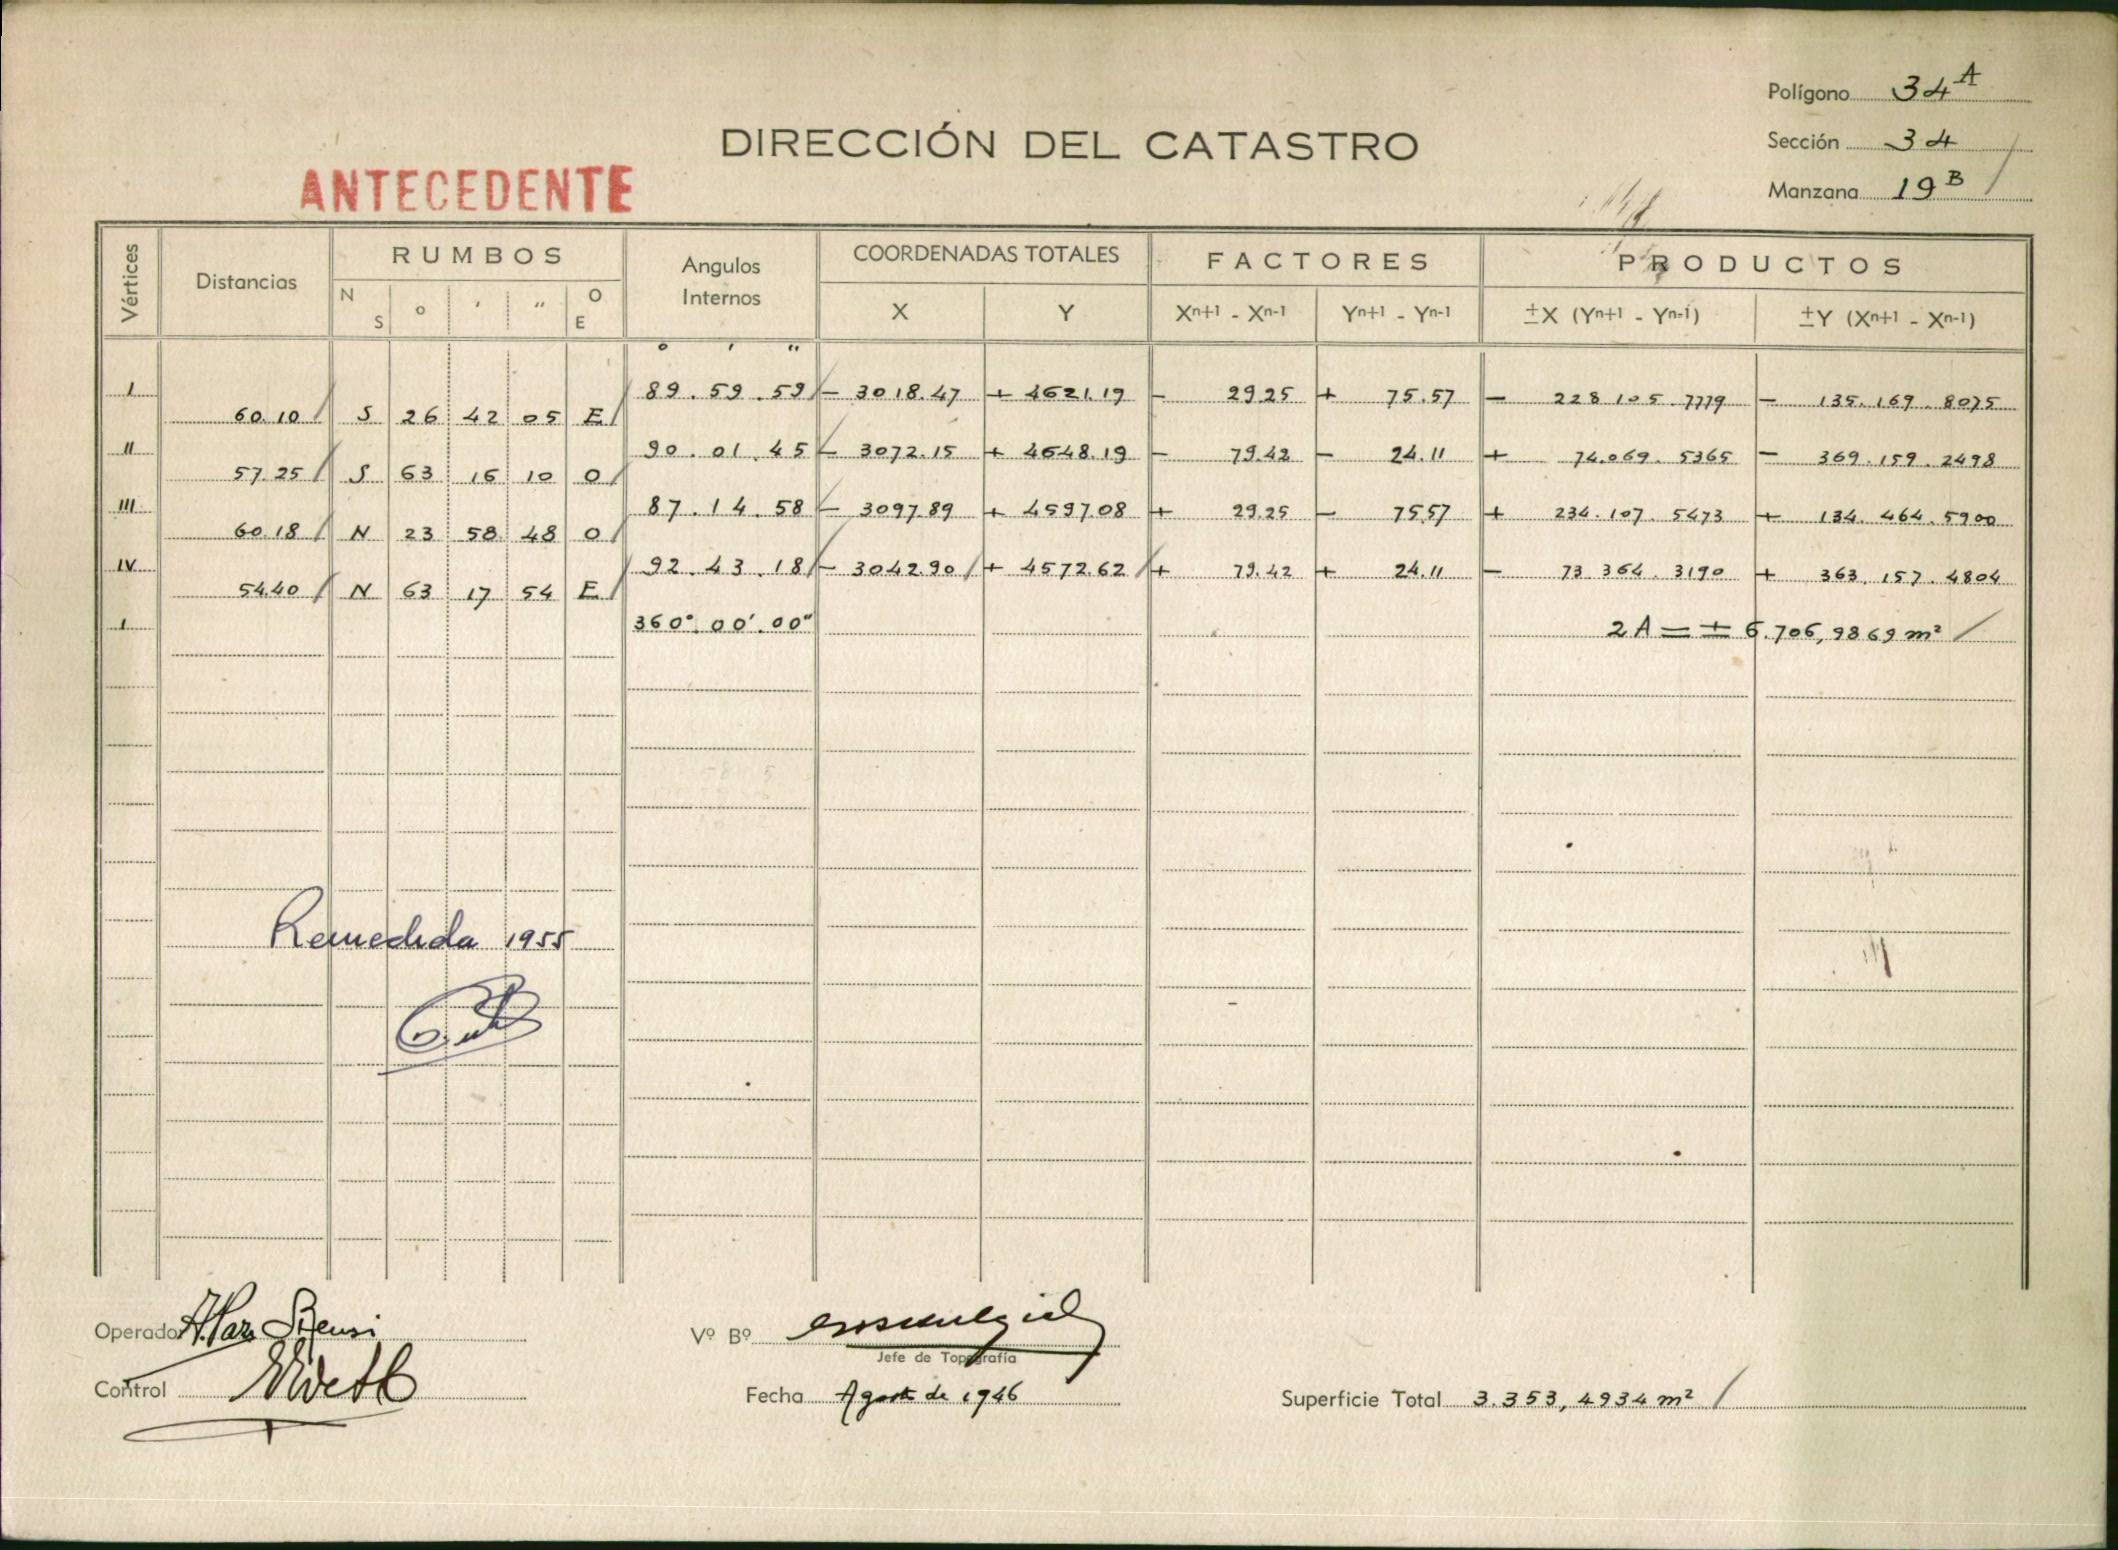 Polígono 34 A
DIRECCIÓN DEL CATASTRO
Sección 34
ANTECEDENTE
Manzana 19 B
Vértices Distancias RUMBOS Angulos Internos COORDENADAS TOTALES FACTORES PRODUCTOS
N S ° ' " O E X Y Xn+1 - Xn-1 Yn+1 - Yn-1 ±X (Yn+1 - Yn-1) ±Y (Xn+1 - Xn-1)
° ' "
I 89.59.59 - 3018.47 + 4621.19 - 29.25 + 75.57 - 228 105.7779 - 135.169.8075
60.10 S 26 42 05 E
II 90.01.45 - 3072.15 + 4648.19 - 79.42 - 24.11 + 74.069.5365 - 369.159.2498
57.25 S 63 16 10 O
III 87.14.58 - 3097.89 + 4597.08 + 29.25 - 75.57 + 234.107.5473 + 134.464.5900
60.18 N 23 58 48 O
IV 92.43.18 - 3042.90 + 4572.62 + 79.42 + 24.11 - 73 364.3190 + 363.157.4804
54.40 N 63 17 54 E
I 360°.00'.00" 2A = ± 6.706,9869 m²
Remedida 1955
Operador
Vº Bº
Jefe de Topografía
Control
Fecha Agosto de 1946
Superficie Total 3.353,4934 m²